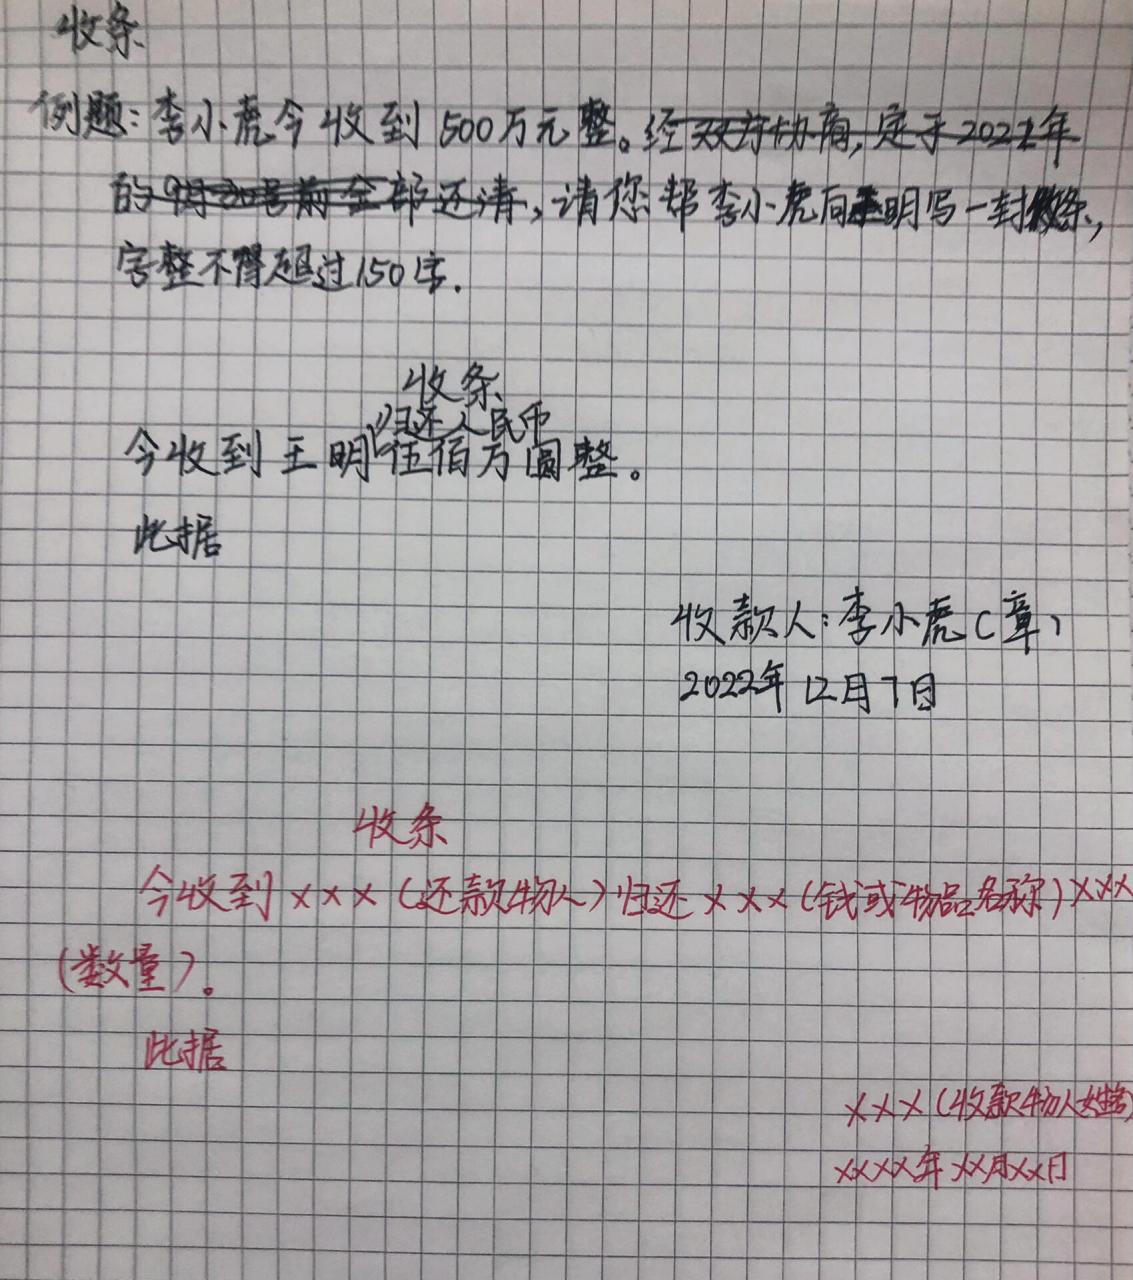 收条
例题:李小虎今收到500万元整。经双方协商,定于2022年
的9月30号前全部还清,请您帮李小虎向王明写一封收条,
字整不得超过150字.
收条
归还人民币
今收到王明伍佰万圆整。
此据
收款人:李小虎(章)
2022年12月7日
收条
今收到×××(还款物人)归还×××(钱或物品名称)×××
(数量)。
此据
×××(收款物人姓名)
××××年××月××日